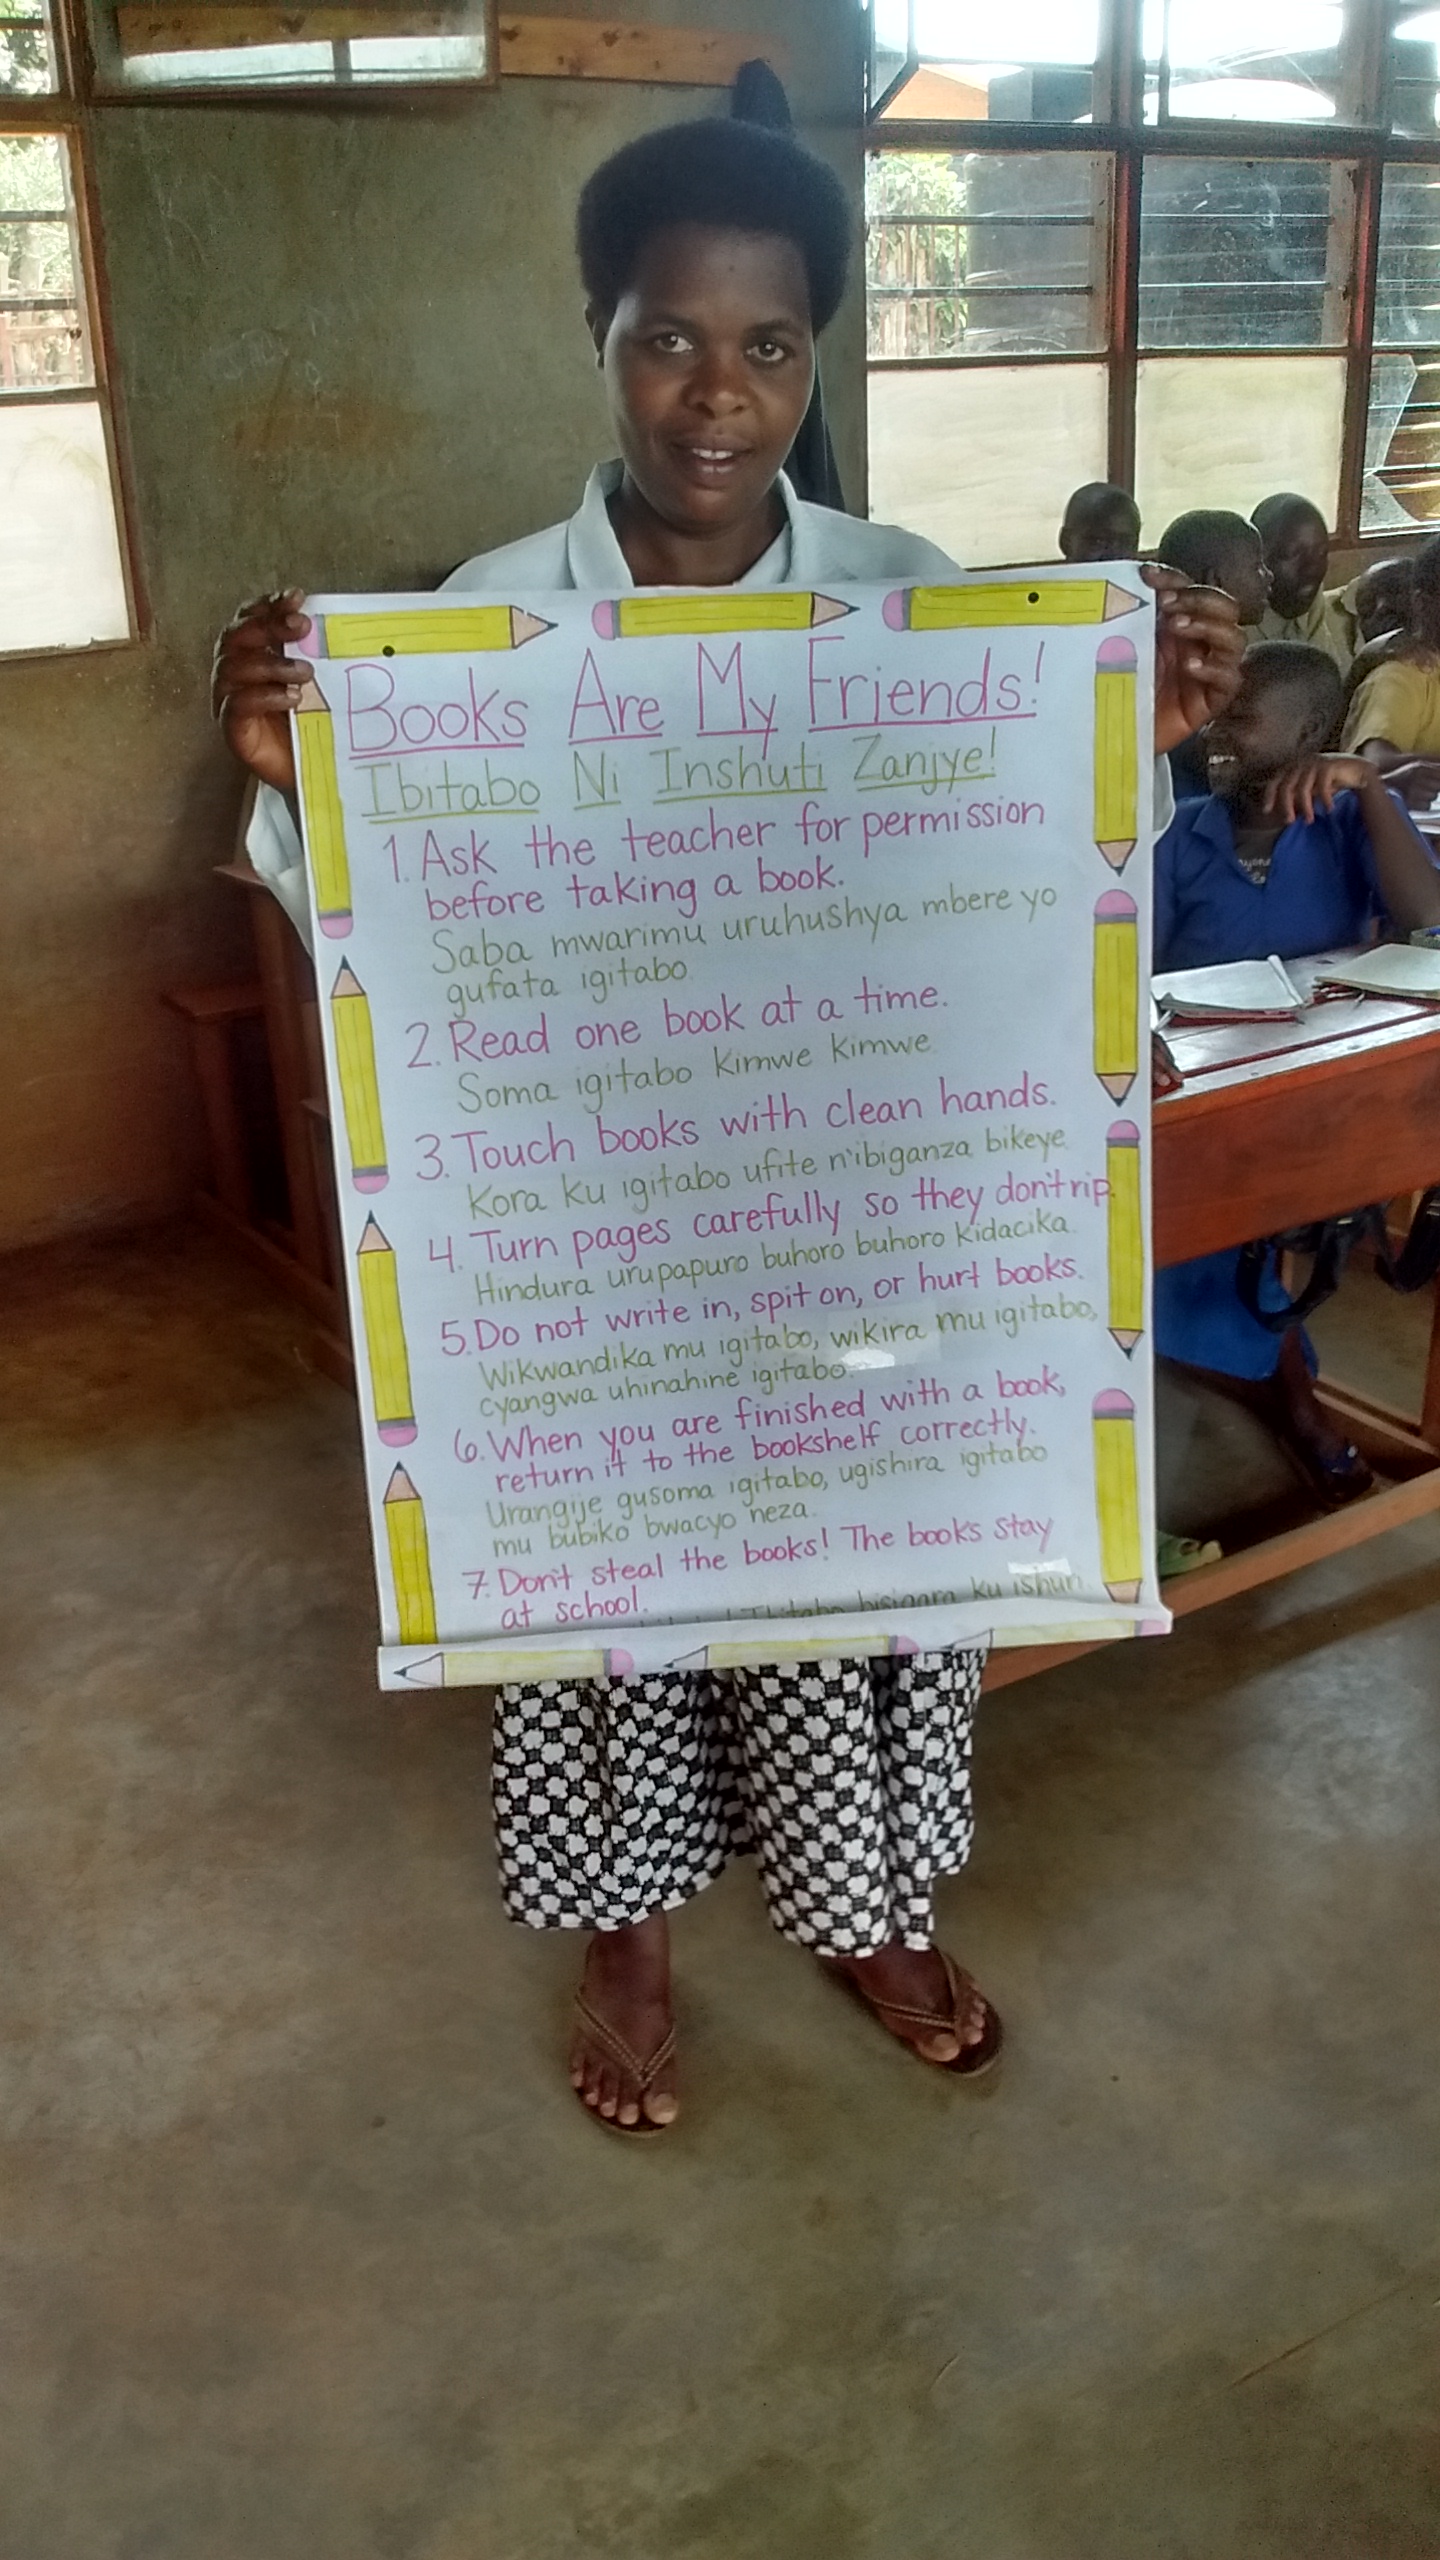 Books Are My Friends!
Ibitabo Ni Inshuti Zanjye!
1. Ask the teacher for permission
before taking a book.
Saba mwarimu uruhushya mbere yo
gufata igitabo
2. Read one book at a time.
Soma igitabo kimwe kimwe
3. Touch books with clean hands.
Kora ku igitabo ufite n'ibiganza bikeye
4. Turn pages carefully so they don't rip.
Hindura urupapuro buhoro buhoro kidacika.
5. Do not write in, spit on, or hurt books.
Wikwandika mu igitabo, wikira mu igitabo,
cyangwa uhinahine igitabo.
6. When you are finished with a book,
return it to the bookshelf correctly.
Urangije gusoma igitabo, ugishira igitabo
mu bubiko bwacyo neza.
7. Don't steal the books! The books stay
at school.
Ibitabo bisigara ku ishuri